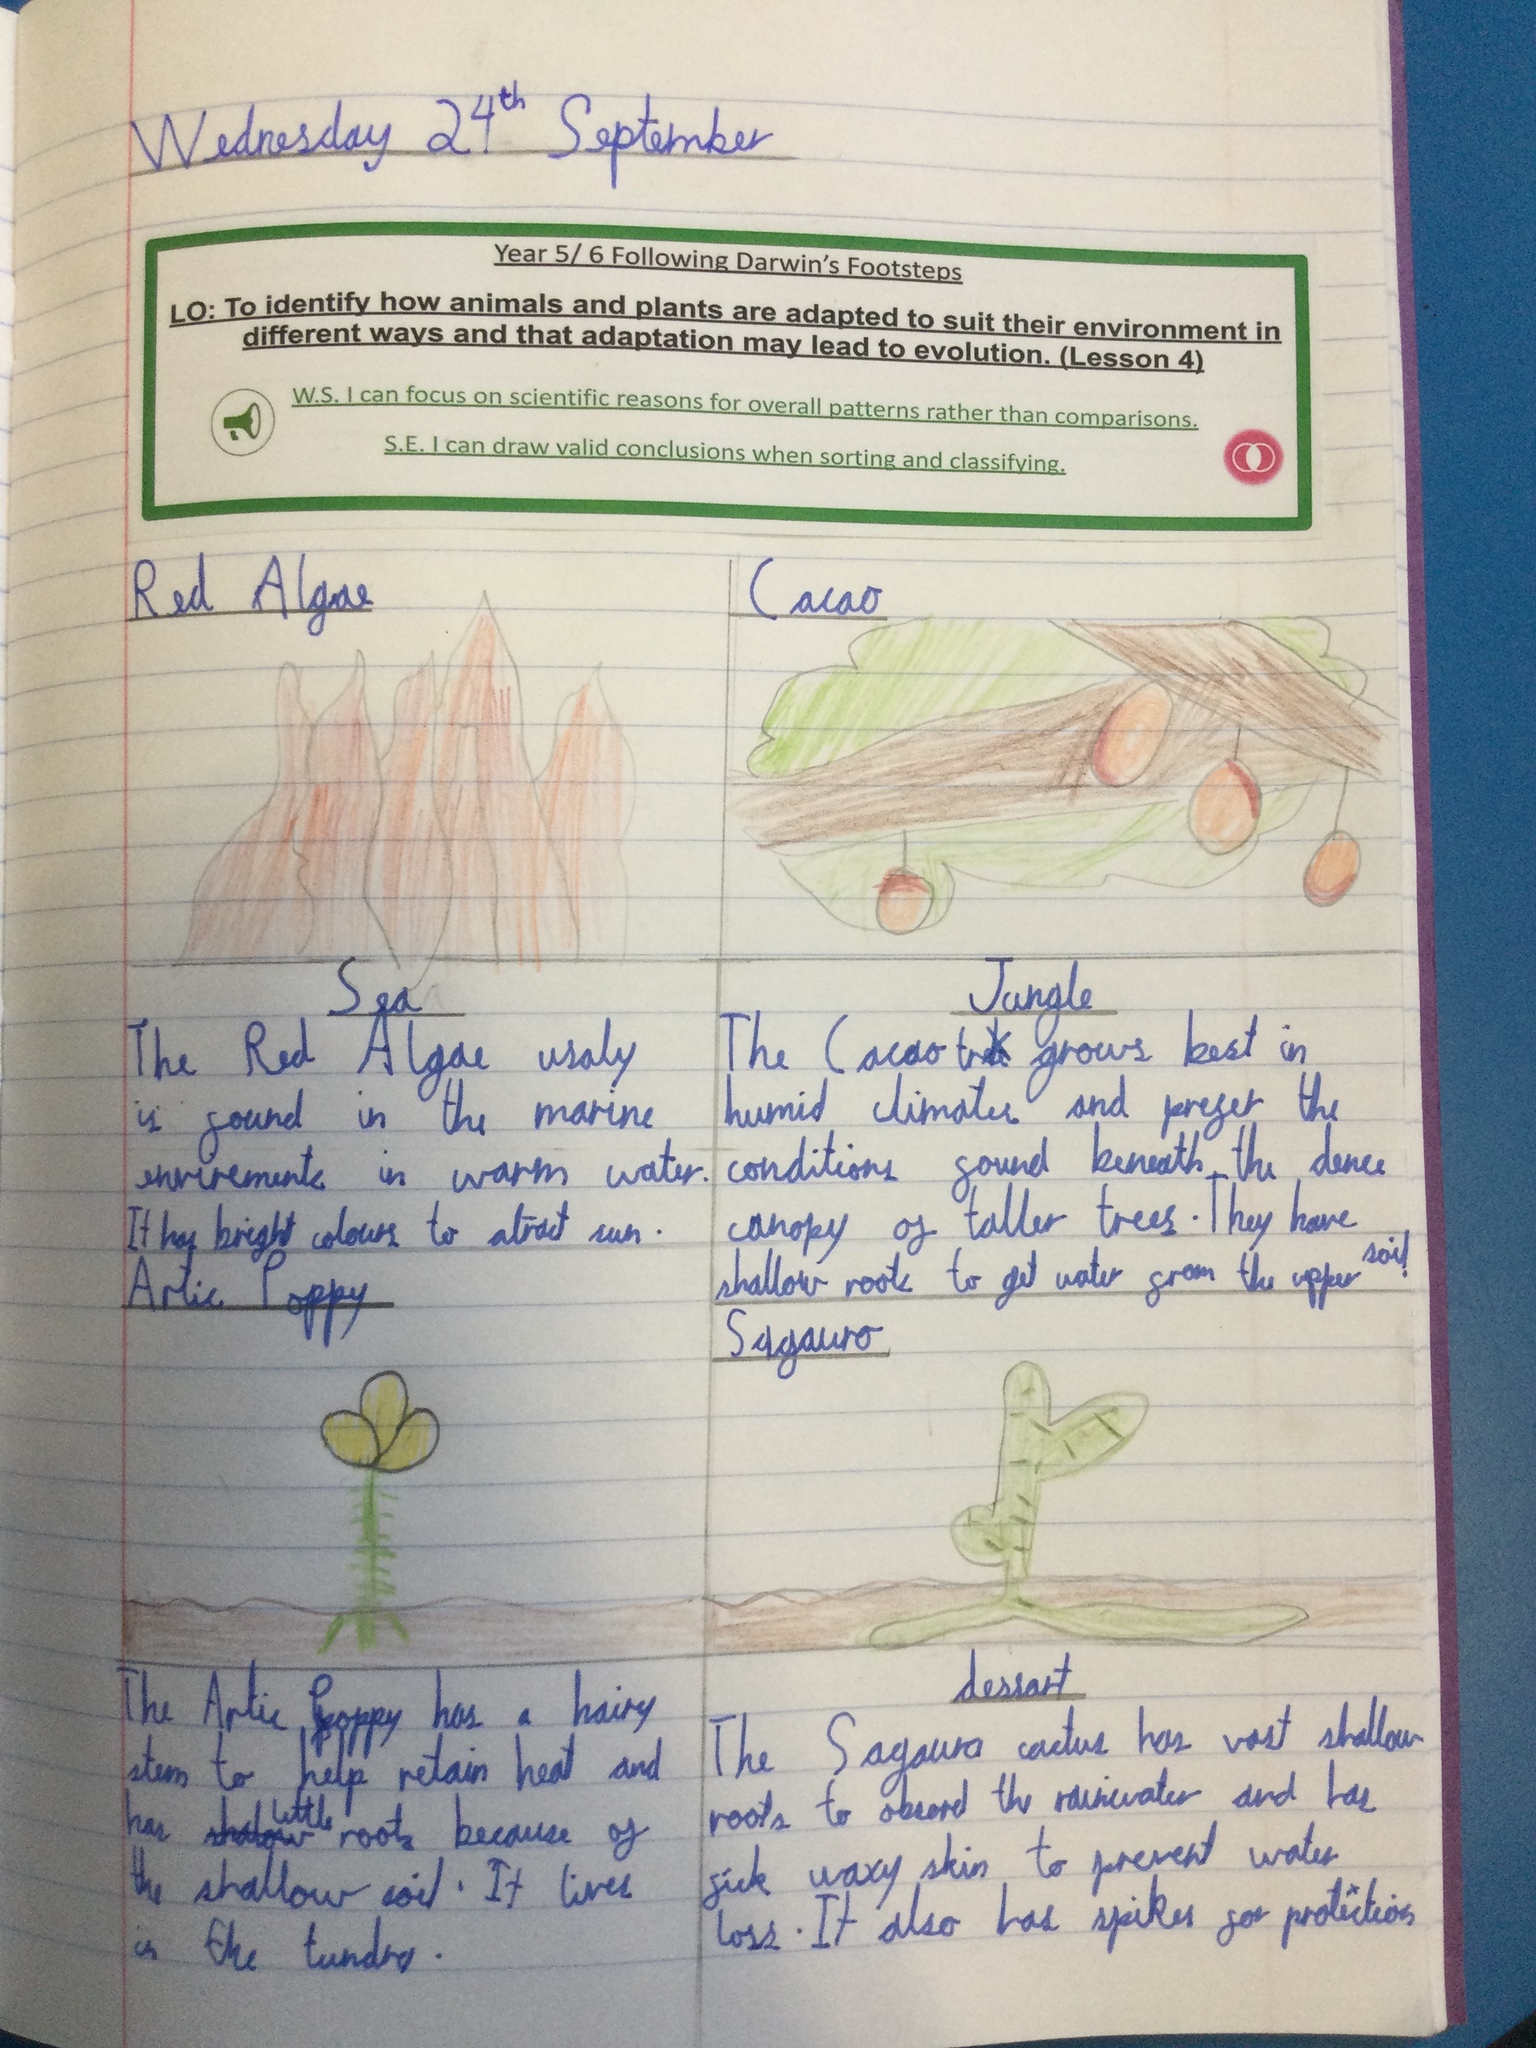 Wednesday 24th September
Year 5/ 6 Following Darwin's Footsteps
LO: To identify how animals and plants are adapted to suit their environment in
different ways and that adaptation may lead to evolution. (Lesson 4)
W.S. I can focus on scientific reasons for overall patterns rather than comparisons.
S.E. I can draw valid conclusions when sorting and classifying.
Red Algae
Sea
The Red Algae usaly
is found in the marine
envirements in warm water.
It has bright colours to atract sun.
Cacao
Jungle
The Cacao grows best in
humid climates and prefer the
conditions found beneath the dence
canopy of taller trees. They have
shallow roots to get water from the upper soil!
Artic Poppy
The Artic Poppy has a hairy
stem to help retain heat and
has little roots because of
the shallow soil. It lives
in the tundra.
Sagauro
dessart
The Sagauro cactus has vast shallow
roots to the rainwater and has
waxy skin to prevent water
loss. It also has spikes for protection